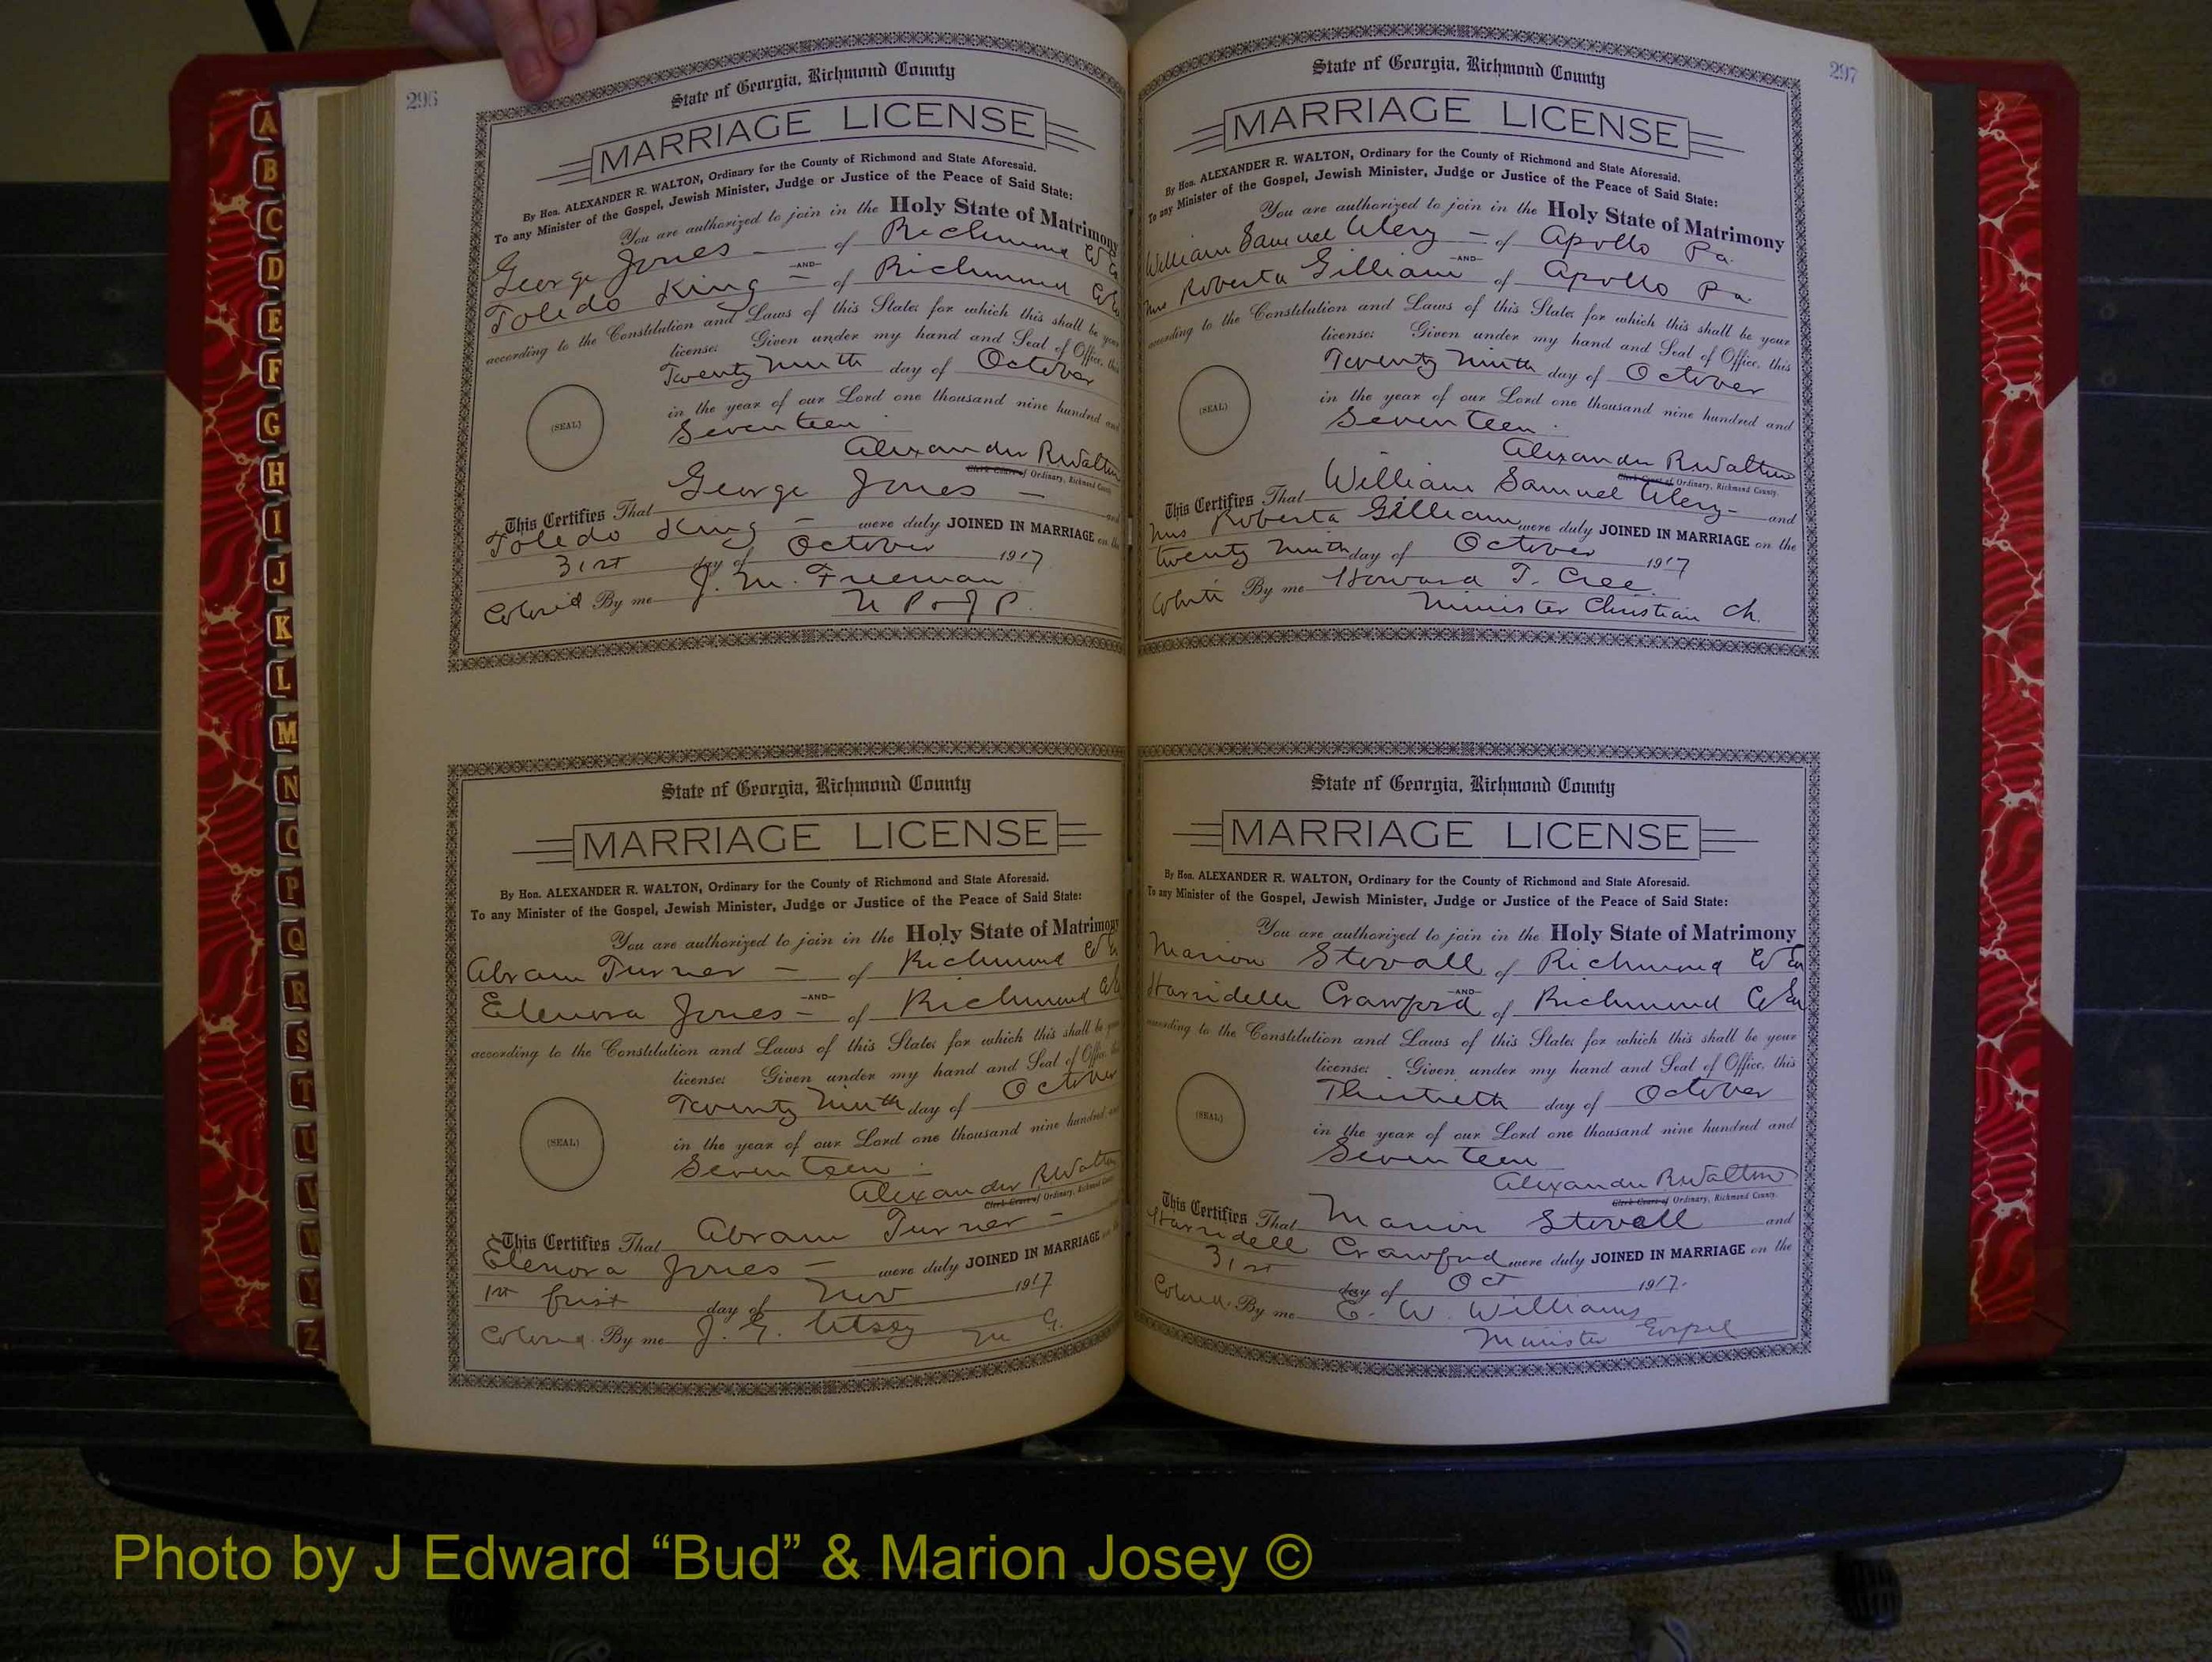 296
State of Georgia, Richmond County
MARRIAGE LICENSE
By Hon. ALEXANDER R. WALTON, Ordinary for the County of Richmond and State Aforesaid.
To any Minister of the Gospel, Jewish Minister, Judge or Justice of the Peace of Said State:
You are authorized to join in the Holy State of Matrimony
George Jones — of Richmond Co
—AND—
Toledo King — of Richmond Co
according to the Constitution and Laws of this State; for which this shall be your
license: Given under my hand and Seal of Office, this
Twenty Ninth day of October
in the year of our Lord one thousand nine hundred and
(SEAL)
Seventeen
Alexander R Walton
Clerk Court of Ordinary, Richmond County
This Certifies That George Jones — and
Toledo King — were duly JOINED IN MARRIAGE on the
31st day of October 1917
Colored By me J. M. Freeman
N P J P.
State of Georgia, Richmond County
MARRIAGE LICENSE
By Hon. ALEXANDER R. WALTON, Ordinary for the County of Richmond and State Aforesaid.
To any Minister of the Gospel, Jewish Minister, Judge or Justice of the Peace of Said State:
You are authorized to join in the Holy State of Matrimony
Abram Turner — of Richmond Co
—AND—
Elenora Jones — of Richmond Co
according to the Constitution and Laws of this State; for which this shall be your
license: Given under my hand and Seal of Office, this
Twenty Ninth day of October
in the year of our Lord one thousand nine hundred and
(SEAL)
Seventeen
Alexander R Walton
Clerk Court of Ordinary, Richmond County
This Certifies That Abram Turner —
Elenora Jones — were duly JOINED IN MARRIAGE on the
1st day of Nov 1917
Colored By me J. G. M. G.
297
State of Georgia, Richmond County
MARRIAGE LICENSE
By Hon. ALEXANDER R. WALTON, Ordinary for the County of Richmond and State Aforesaid.
To any Minister of the Gospel, Jewish Minister, Judge or Justice of the Peace of Said State:
You are authorized to join in the Holy State of Matrimony
William Samuel — of Apollo Pa.
—AND—
Mrs Roberta Gilliam of Apollo Pa
according to the Constitution and Laws of this State; for which this shall be your
license: Given under my hand and Seal of Office, this
Twenty Ninth day of October
in the year of our Lord one thousand nine hundred and
(SEAL)
Seventeen.
Alexander R Walton
Clerk Court of Ordinary, Richmond County.
This Certifies That William Samuel — and
Mrs Roberta Gilliam were duly JOINED IN MARRIAGE on the
twenty ninth day of October 1917
White By me Howard T. Cree.
Minister Christian Ch.
State of Georgia, Richmond County
MARRIAGE LICENSE
By Hon. ALEXANDER R. WALTON, Ordinary for the County of Richmond and State Aforesaid.
To any Minister of the Gospel, Jewish Minister, Judge or Justice of the Peace of Said State:
You are authorized to join in the Holy State of Matrimony
Marion Stovall of Richmond Co Ga
—AND—
Harridelle Crawford of Richmond Co Ga
according to the Constitution and Laws of this State; for which this shall be your
license: Given under my hand and Seal of Office, this
Thirtieth day of October
in the year of our Lord one thousand nine hundred and
(SEAL)
Seventeen
Alexander R Walton
Clerk Court of Ordinary, Richmond County.
This Certifies That Marion Stovall and
Harridell Crawford were duly JOINED IN MARRIAGE on the
31st day of Oct 1917.
Colored By me E. W. Williams
Minister Gospel
A
B
C
D
E
F
G
H
I
J
K
L
M
N
O
P
Q
R
S
T
U
V
W
Y
Z
Photo by J Edward “Bud” & Marion Josey ©